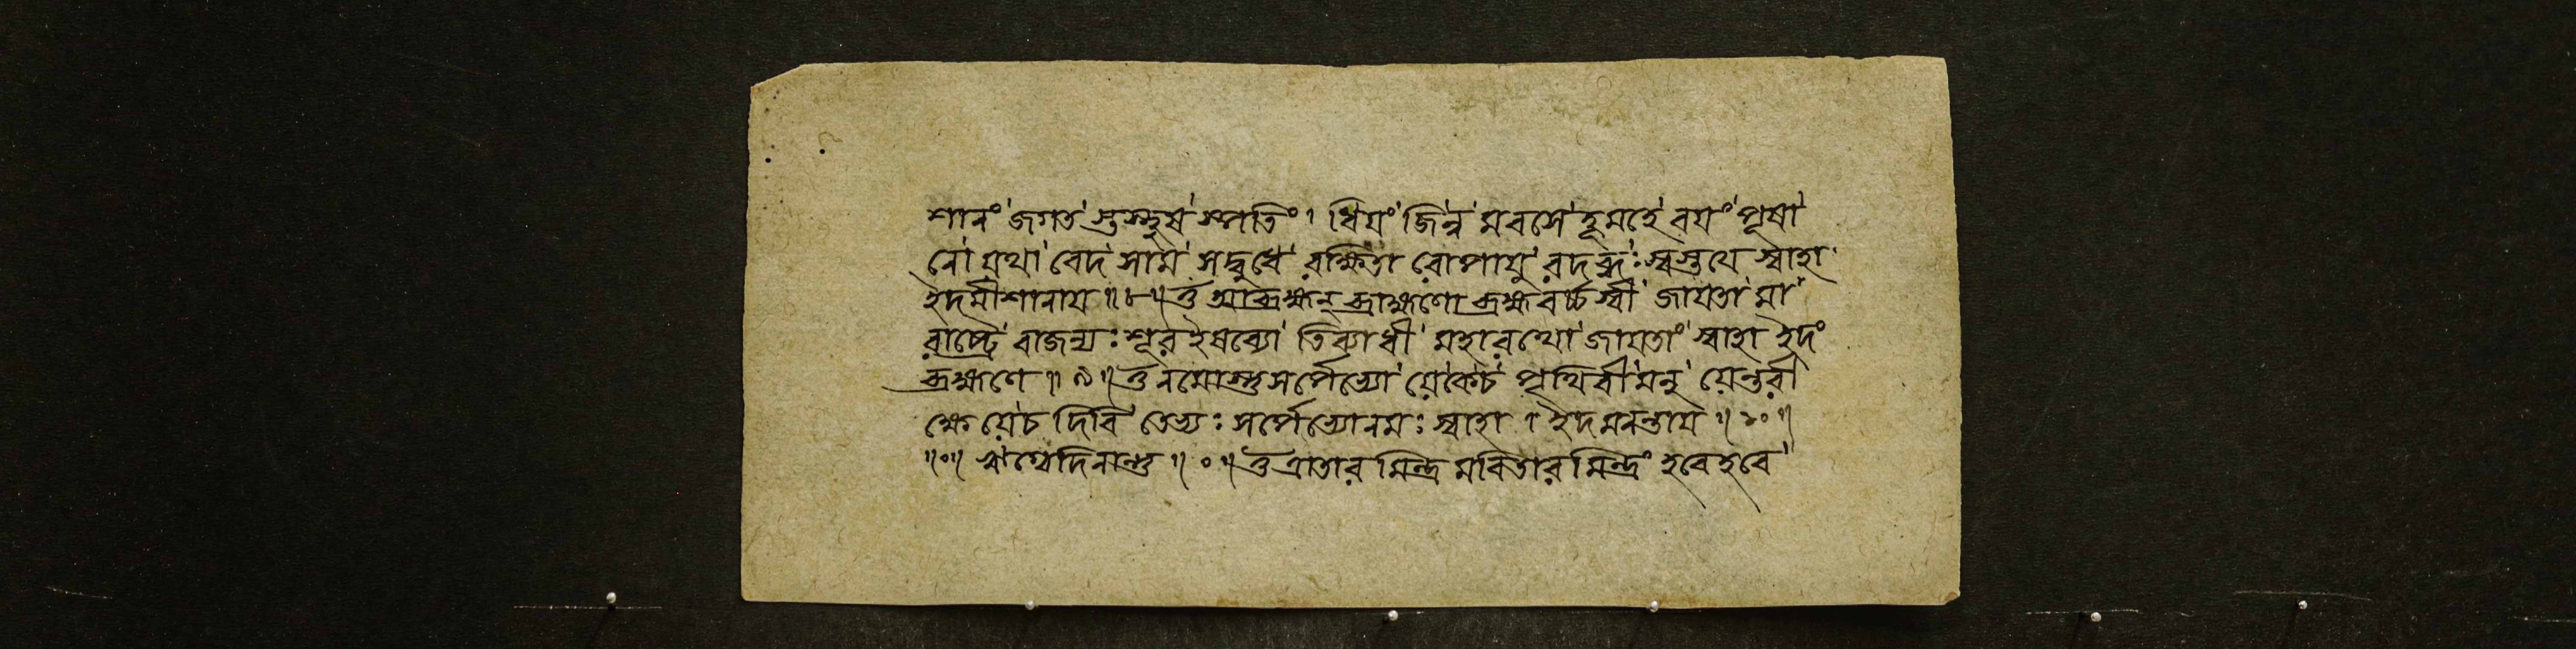 শানং জগত স্তস্থুষ স্পতিং। ধিযং জিন্ব মবসে হূমহে বযং পূষা
নো যথা বেদ সাম সদ্বৃধে ৰক্ষিতা ৰোপাযু ৰদব্ধঃ স্বস্তযে স্বাহা
ইদমীশানায॥৮॥ওঁ আব্রহ্মন্ ব্রাহ্মণো ব্রহ্মবর্চ্চস্বী জাযতা মা
ৰাষ্ট্রে ৰাজন্যঃ শূৰ ইষব্যো তিব্যাধী মহাৰথো জাযতাং স্বাহা ইদং
ব্রহ্মণে॥৯॥ওঁ নমোস্তুসর্পেভ্যো যেকেচ পৃথিবী মনু যেন্তৰী
ক্ষে যেচ দিবি তেভ্যঃ সর্পেভ্যোনমঃ স্বাহা। ইদমনন্তায॥১০॥
॥০॥ ॥০॥ওঁ ত্রাতাৰ মিন্দ্র মবিতাৰ মিন্দ্রং হবেহবে